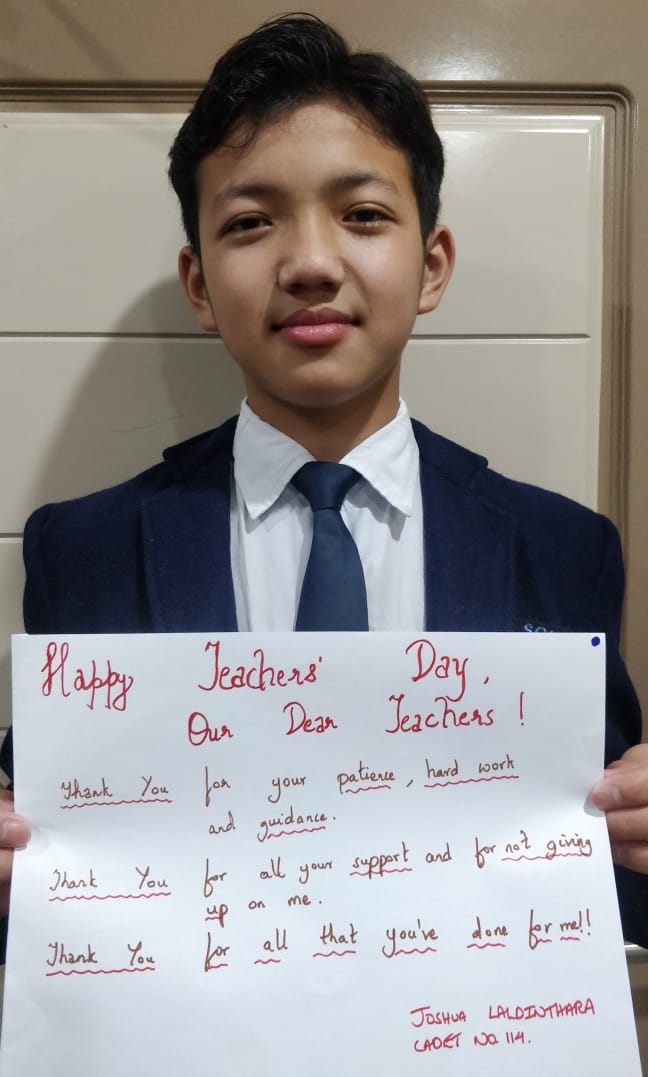 Happy Teachers' Day,
Our Dear Teachers!
Thank You for your patience, hard work
and guidance.
Thank You for all your support and for not giving
up on me.
Thank You for all that you've done for me!!
JOSHUA LALDINTHARA
CADET NO. 114.